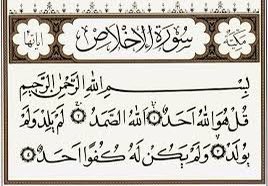 مكية سُورَةُ الإِخْلَاصِ آياتها
بِسْمِ اللَّهِ الرَّحْمَٰنِ الرَّحِيمِ
قُلْ هُوَ اللَّهُ أَحَدٌ اللَّهُ الصَّمَدُ لَمْ يَلِدْ وَلَمْ
يُولَدْ وَلَمْ يَكُن لَّهُ كُفُوًا أَحَدٌ